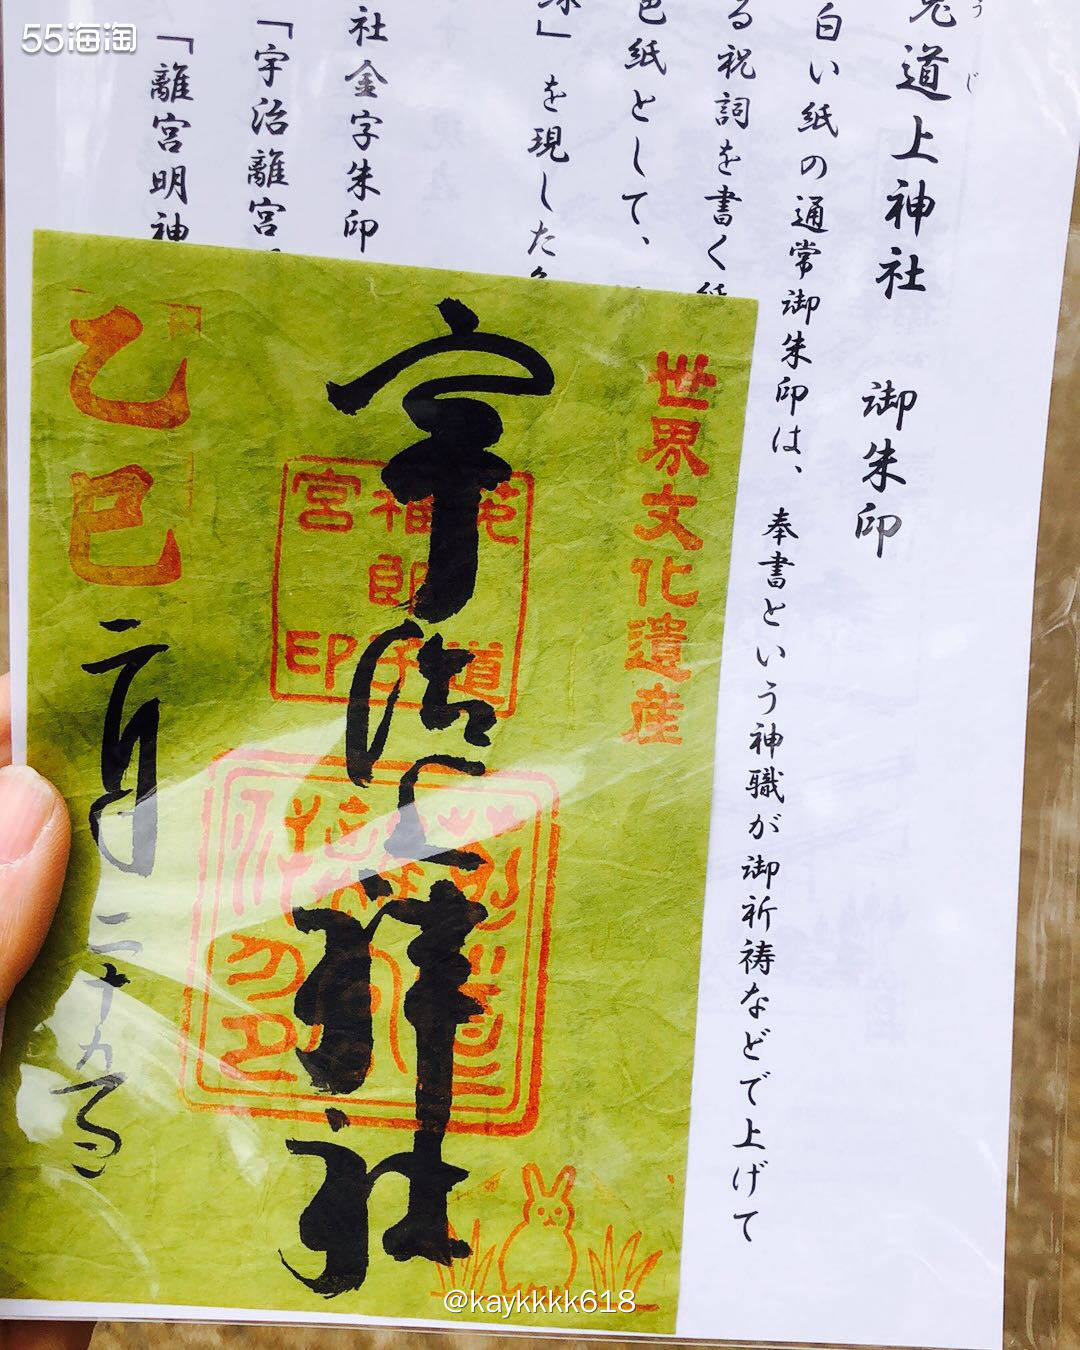 55海淘
道上神社　御朱印
うじ
白い紙の通常御朱印は、奉書という神職が御祈祷などで上げて
る祝詞を書く
色紙として、
」を現した
社金字朱印
「宇治離宮
「離宮明神
世界文化遺産
宇治上神社
宮印
乙巳
月二十九日
@kaykkkk618